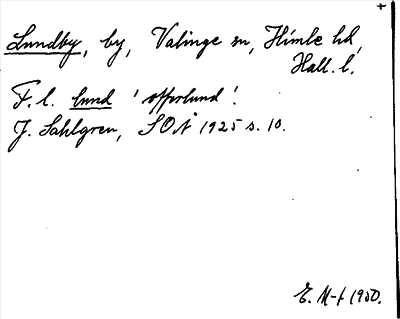 +
Lundby, by, Valinge sn, Himle hd,
Hall. l.
F. l. lund 'offerlund'.
J. Sahlgren, SOÅ 1925 s. 10.
E. M-t 1950.